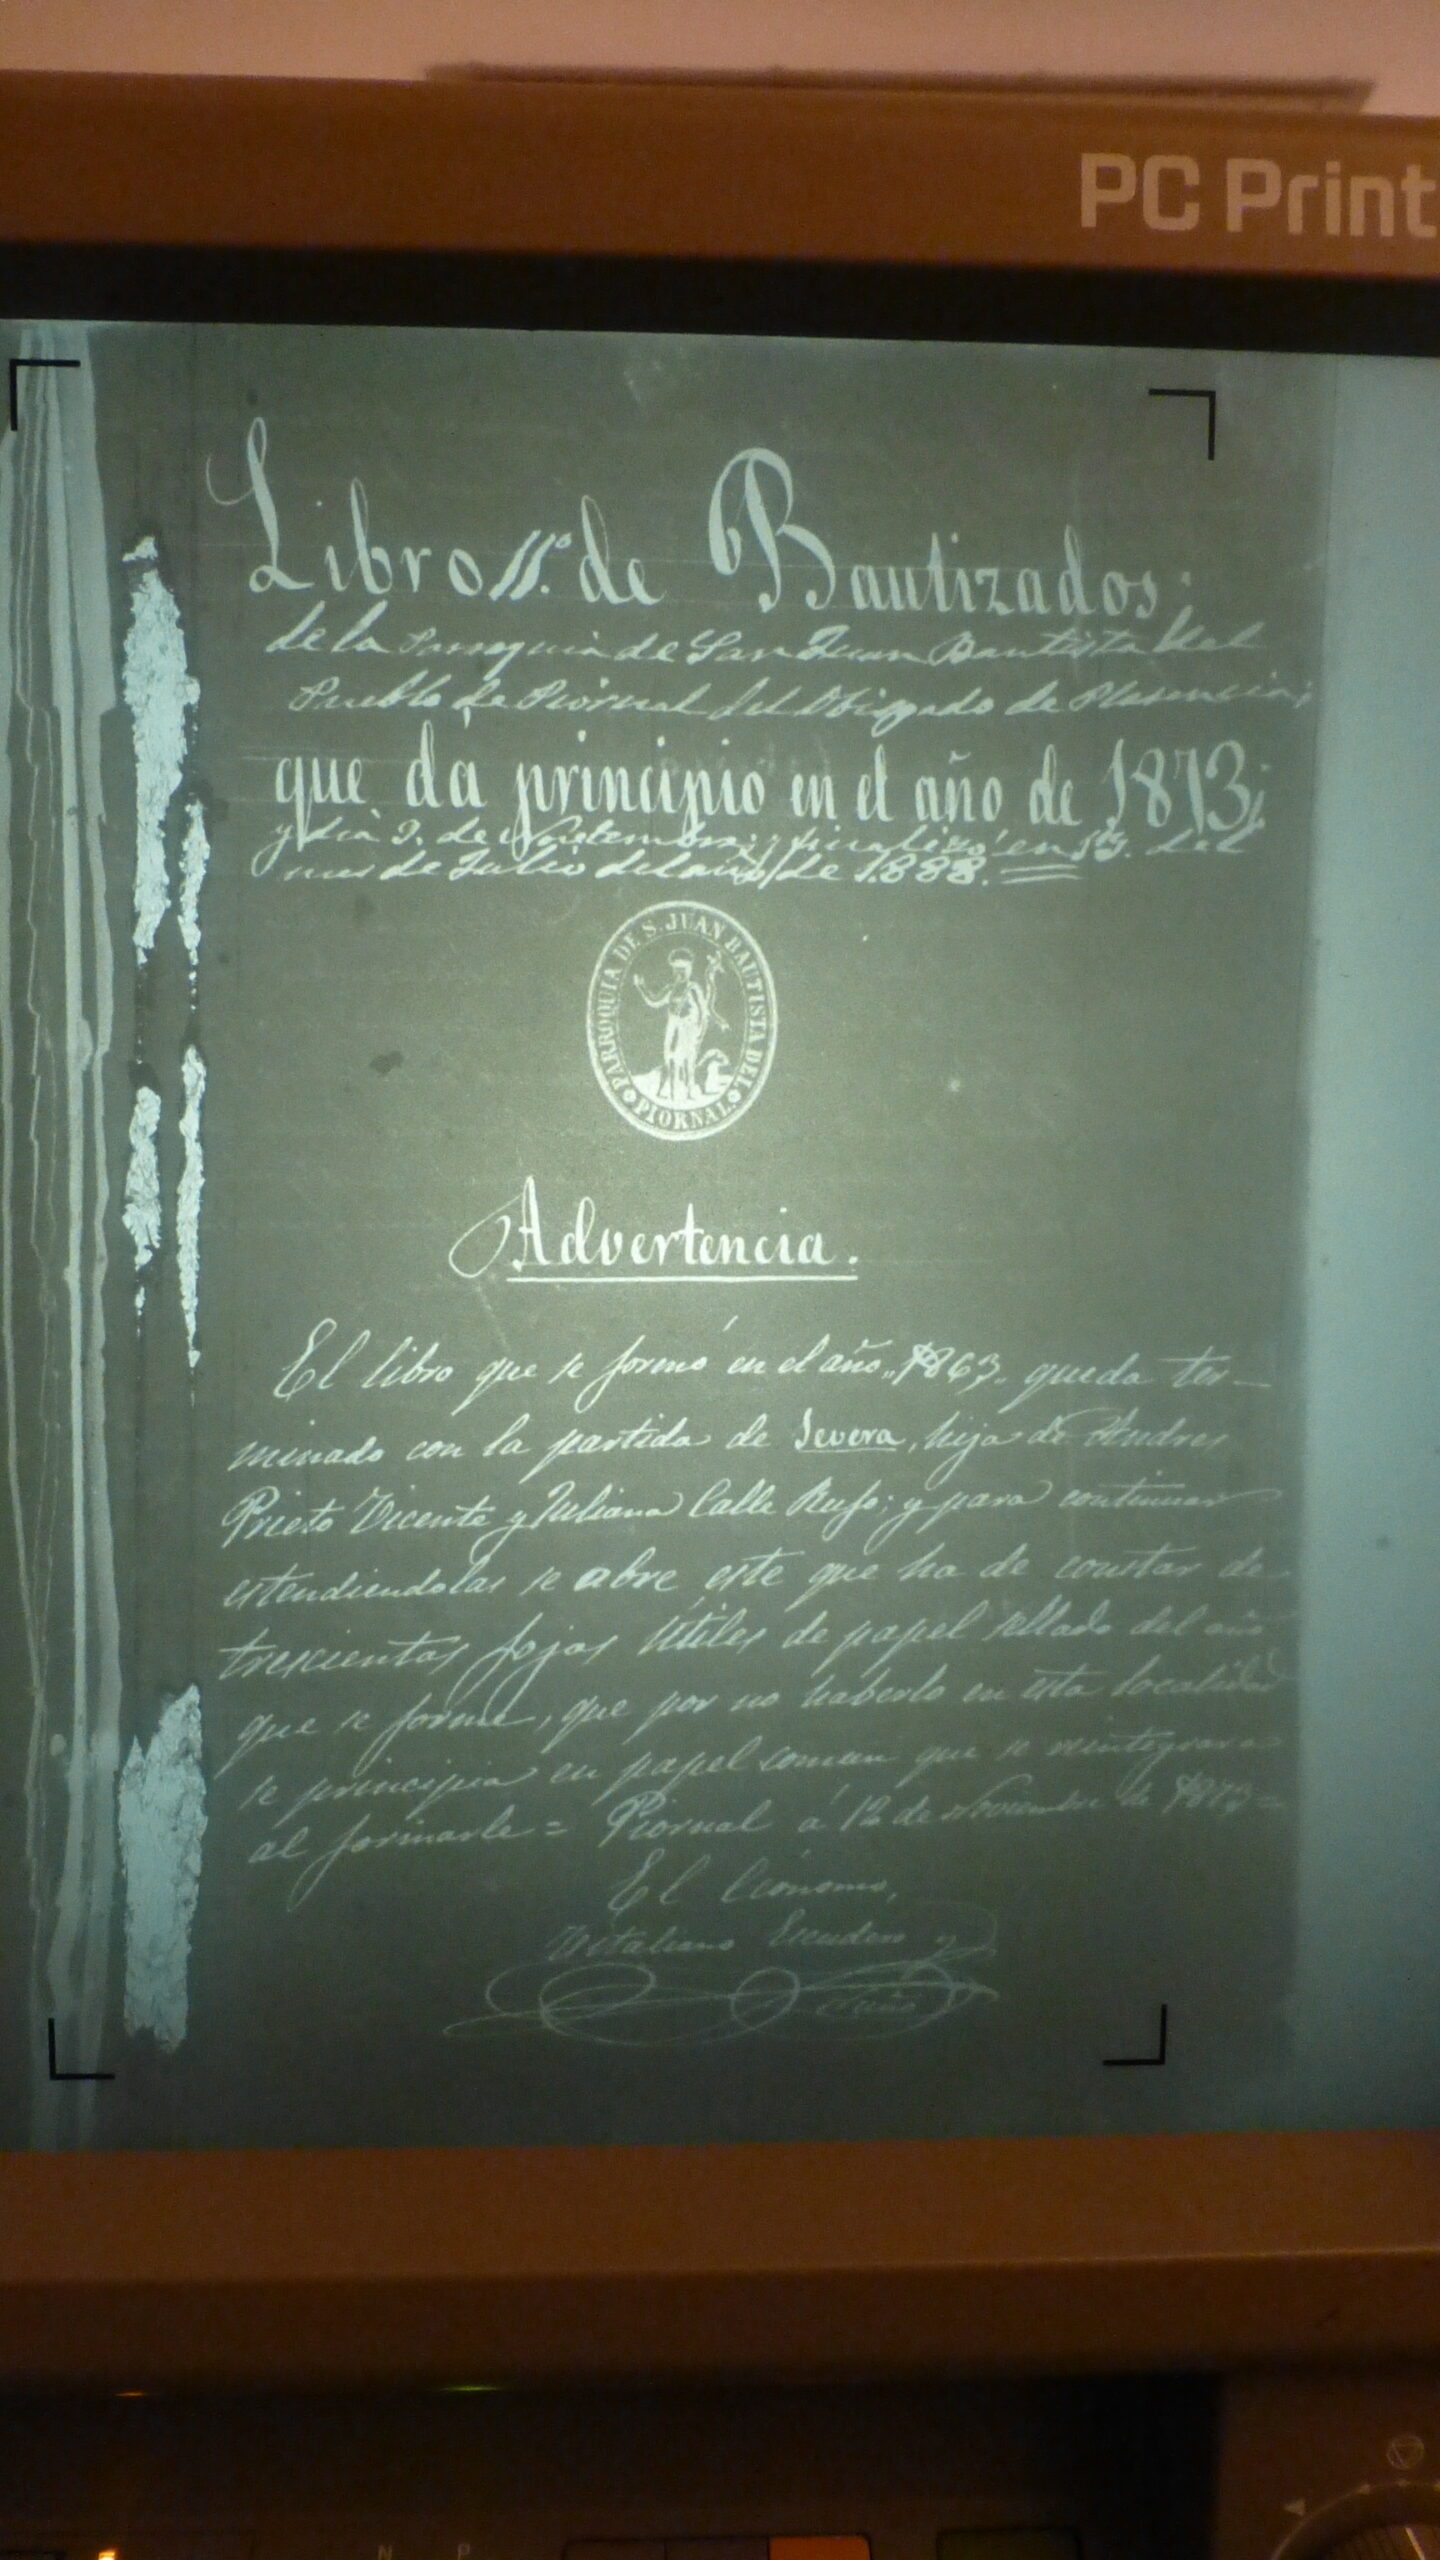 PC Print
Libro 11.º de Bautizados;
de la Parroquia de San Juan Bautista del
Pueblo de Piornal del Obispado de Plasencia;
que dá principio en el año de 1873;
y dia 9. de Noviembre; y finalizó en del
mes de Julio del año de 1.888.
PARROQUIA DE S. JUAN BAUTISTA DEL
PIORNAL
Advertencia.
El libro que se formó en el año "1863" queda ter-
minado con la partida de Severa, hija de Andres
Prieto Vicente y Juliana Calle Rufo; y para continuar
estendiendolas se abre este que ha de constar de
trescientas fojas útiles de papel sellado del año
que se forme, que por no haberlo en esta localidad
se principia en papel comun que se reintegrara
al formarle = Piornal á 12 de Noviembre de 1873 =
El Ecónomo,
Vitaliano Escudero y
N P